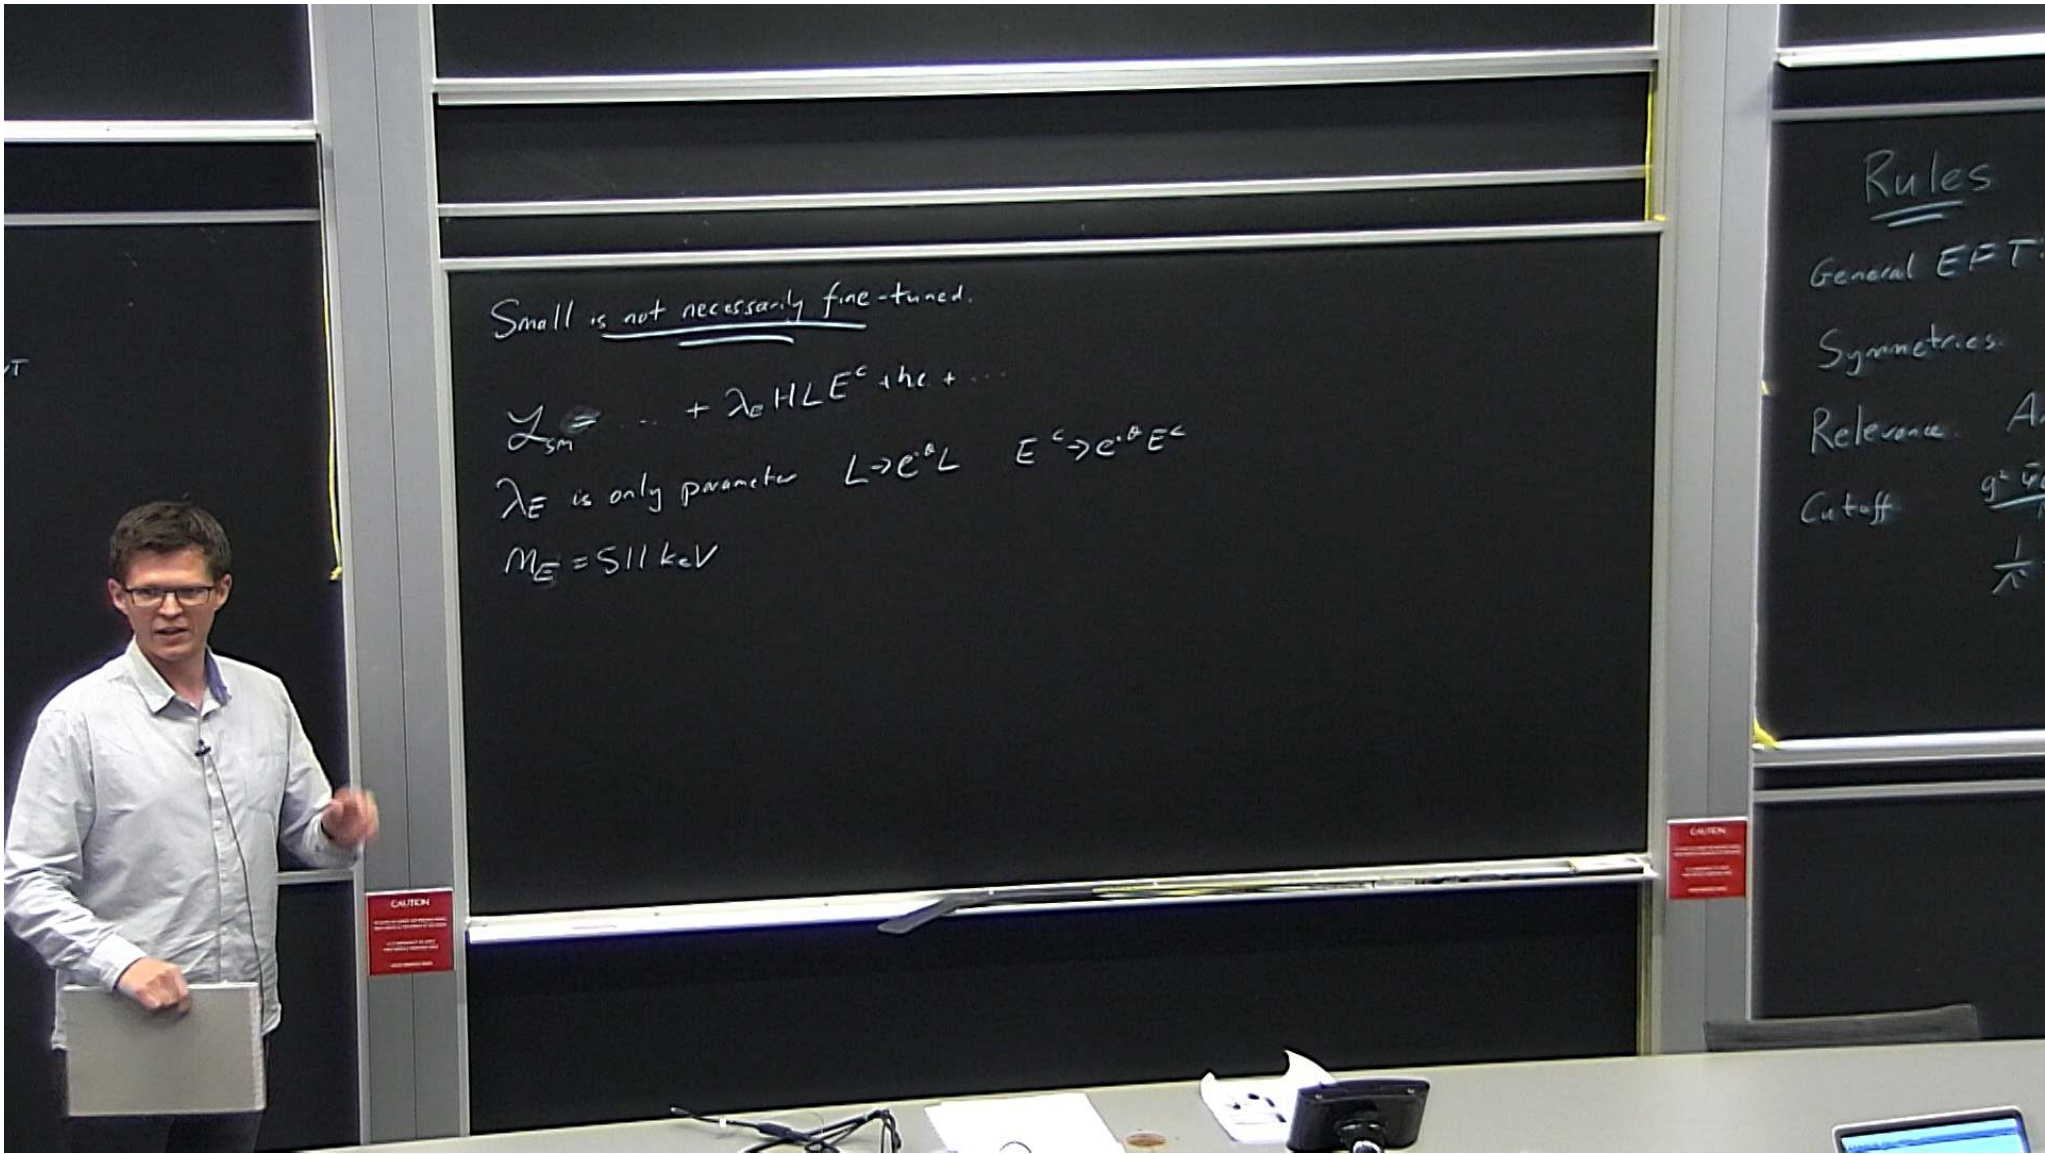 Small is not necessarily fine-tuned.
ℒ_SM = ... + λ_e H L E^c + h.c. + ...
λ_E is only parameter L → e^{iθ} L E^c → e^{iθ} E^c
M_E = 511 keV
Rules
General EFT:
Symmetries:
Relevance:
Cutoff
CAUTION
CAUTION